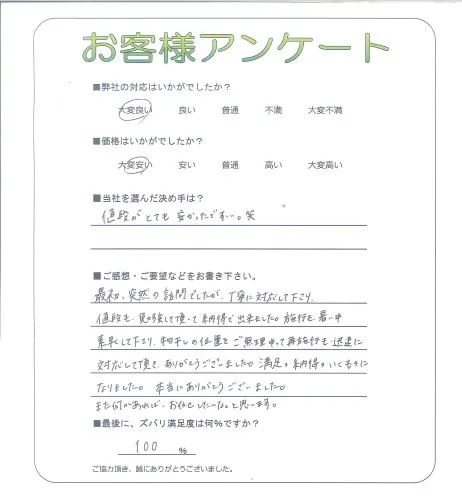 お客様アンケート
■弊社の対応はいかがでしたか？
大変良い 良い 普通 不満 大変不満
■価格はいかがでしたか？
大変安い 安い 普通 高い 大変高い
■当社を選んだ決め手は？
値段がとても安かったですぃ。笑
■ご感想・ご要望などをお書き下さい。
最初、突然の訪問でしたが、丁寧に対応して下さり、
値段も、頂いて納得で出来ました。施行も、暑い中
素早くして下さり、物干しの位置をご無理申って再施行も迅速に
対応して頂き、ありがとうございました。満足。納得。いくものに
なりました。本当にありがとうございました。
また何かあれば、お任せしたいな。と思います。
■最後に、ズバリ満足度は何％ですか？
100 ％
ご協力頂き、誠にありがとうございました。